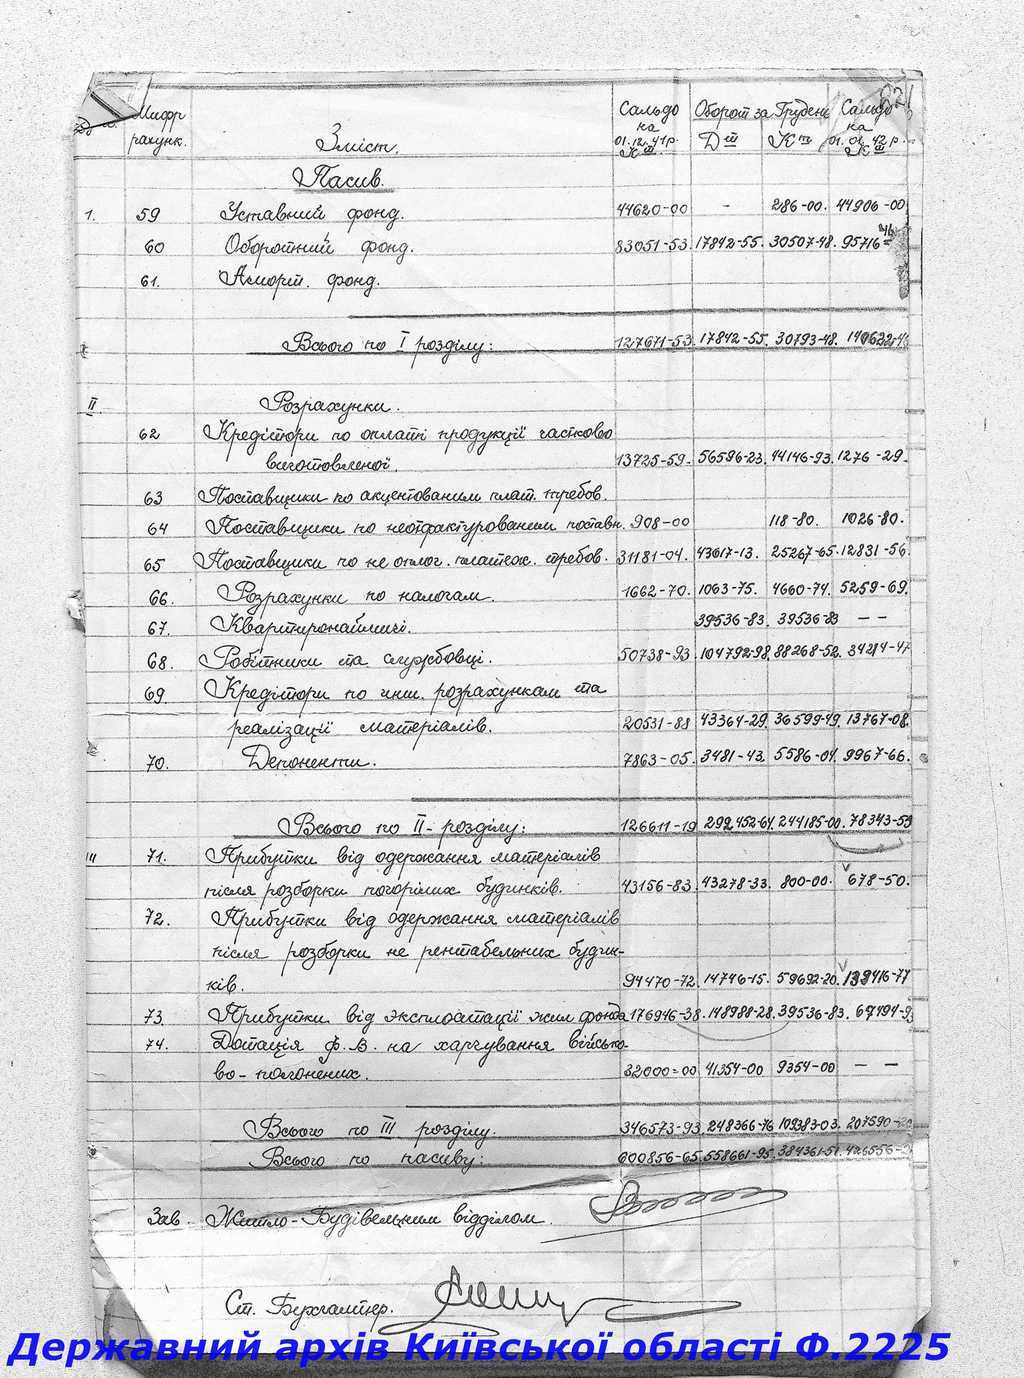 621
Шифр рахунк. Зміст. Сальдо на 01.12.41р. Кт Оборот за Грудень Дт Кт Сальдо на 01.01.42р. Кт
Пасив.
1. 59 Уставний фонд. 44620-00 - 286-00. 44906-00
60 Оборотний фонд. 83051-53. 17842-55. 30507-48. 95716=46
61. Аморт. фонд.
Всього по I розділу: 127671-53. 17842-55. 30793-48. 140622-46
II. Розрахунки.
62 Кредітори по оплаті продукції частково
виготовленої. 13725-59. 56596-23. 44146-93. 1276-29.
63 Поставщики по акцептованим плат. требов.
64 Поставщики по неотфактурованим поставк. 908-00 118-80. 1026-80.
65 Поставщики по не оплог. платеж. требов. 31181-04. 43617-13. 25267-65. 12831-56.
66. Розрахунки по налогам. 1662-70. 1063-75. 4660-74. 5259-69.
67. Квартиронаймачі. 39536-83. 39536-83 — —
68. Робітники та службовці. 50738-93. 104792-98. 88268-52. 34214-47
69 Кредітори по инш. розрахункам та
реалізації матеріалів. 20531-88 43364-29. 36599-49. 13767-08.
70. Депоненти. 7863-05. 3481-43. 5586-04. 9967-66.
Всього по II-розділу: 126611-19 292452-64. 244185-00. 78343-55
III 71. Прибутки від одержання матеріалів
після розборки погорілих будинків. 43156-83. 43278-33. 800-00. 678-50.
72. Прибутки від одержання матеріалів
після розборки не рентабельних будин-
ків. 94470-72. 14746-15. 59692-20. 139416-77
73. Прибутки від эксплоатації жил фонда 176946-38. 148988-28. 39536-83. 67494-93
74. Дотація Ф.В. на харчування військо-
во-полонених. 32000=00 41354-00 9354-00 — —
Всього по III розділу. 346573-93. 248366-76 109383-03. 207590-20
Всього по пасиву: 600856-65. 558661-95. 384361-51. 426556-21
Зав. Житло-Будівельним відділом.
Ст. Бухгалтер.
Державний архів Київської області Ф.2225